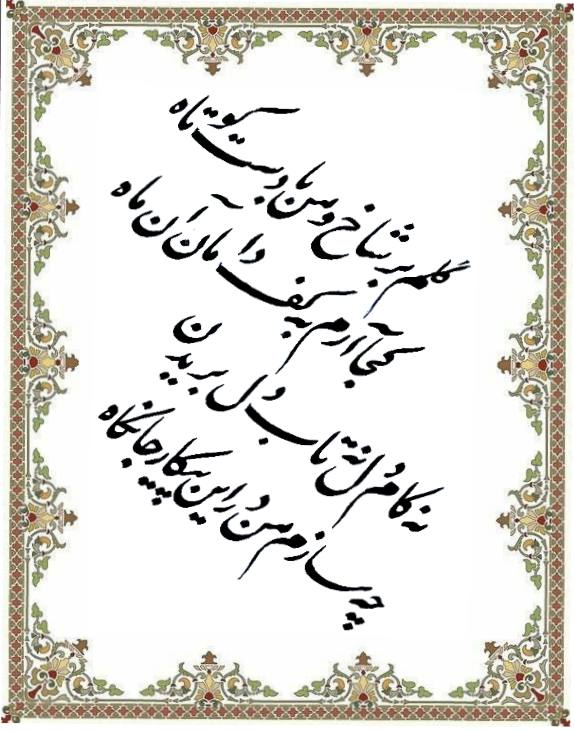 گلم بر شاخ و من با دست کوتاه
کجا آرم به کف دامان آن ماه
نه کام دل نه تاب دل بریدن
چه سازم من در این پیکار جانکاه